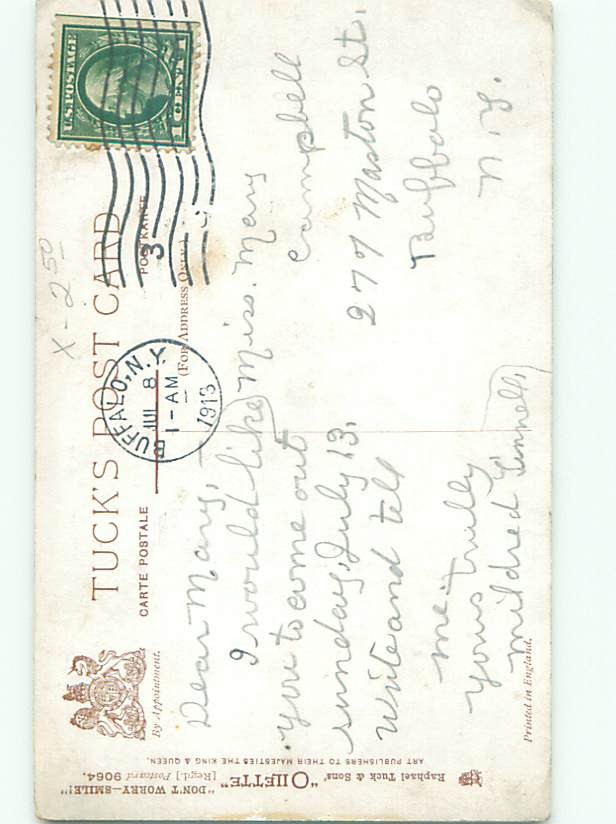 TUCK'S POST CARD
CARTE POSTALE
POSTKARTE
(FOR ADDRESS ONLY.)
By Appointment.
X-2 50
U.S. POSTAGE
1 CENT 1
BUFFALO, N.Y.
JUL 8
1-AM
1913
3
Dear Mary,
I would like
you to come out
sunday, July 13.
Write and tell
me.
yours trully
Mildred
Miss. Mary
Campbell
277 Maston St.
Buffalo
N.Y.
"DON'T WORRY—SMILE!"
Raphael Tuck & Sons' "OILETTE" [Regd.] Postcard 9064.
ART PUBLISHERS TO THEIR MAJESTIES THE KING & QUEEN.
Printed in England.